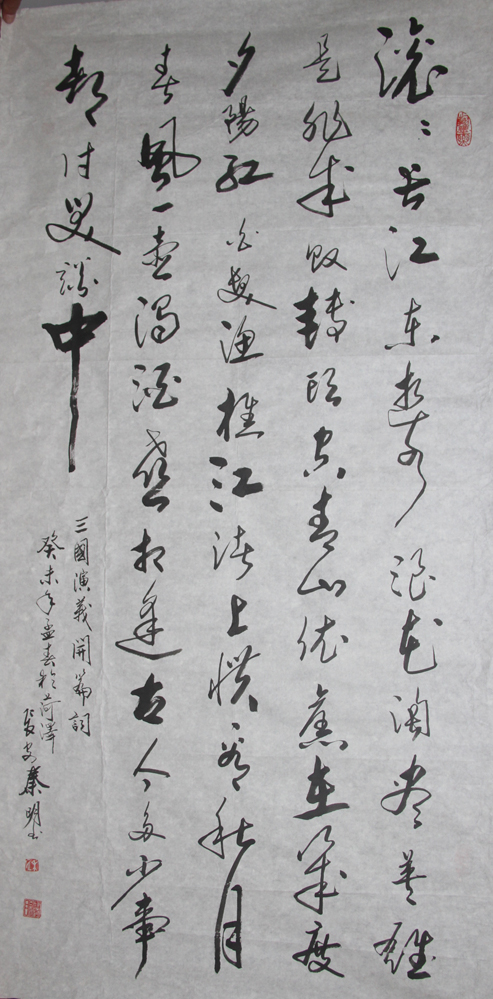 滚〻长江东逝水浪花淘尽英雄
是非成败转头空青山依旧在几度
夕陽红白发渔樵江渚上惯看秋月
春風一壶浊酒喜相逢古今多少事
都付笑谈中
三國演義開篇詞
癸未年孟春於菏澤
秦明书